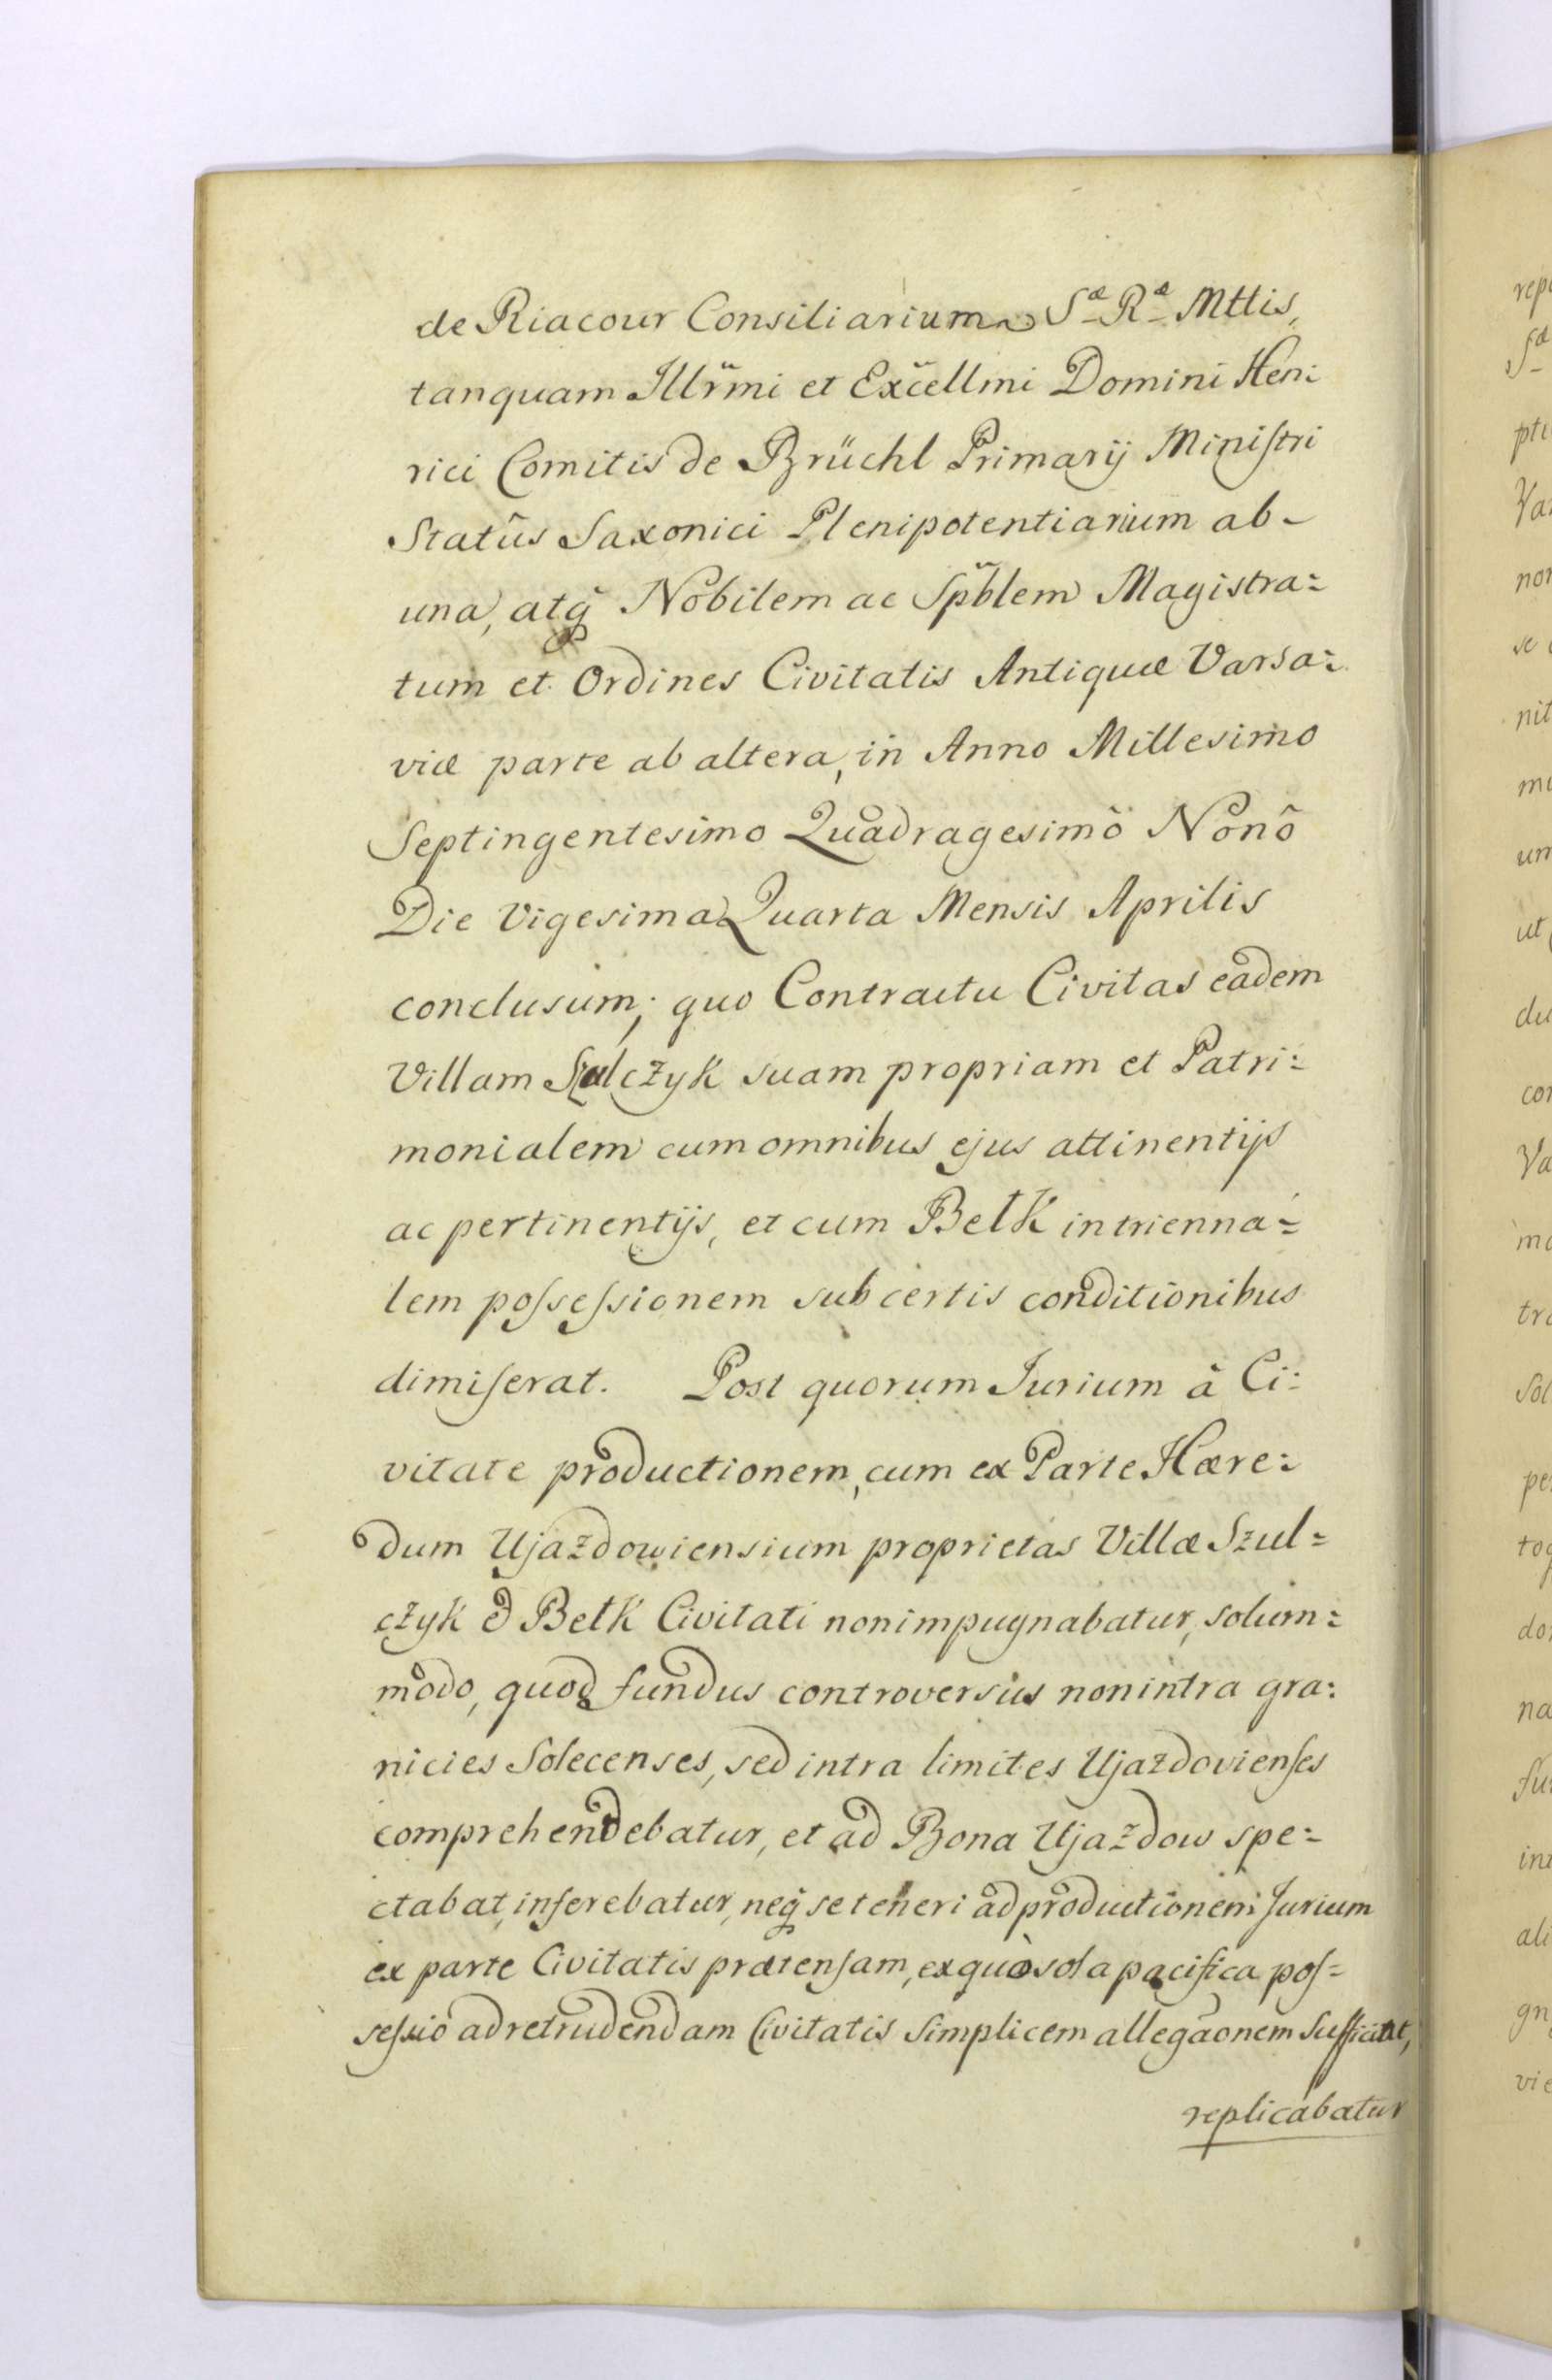 de Riacour Consiliarium Sæ Ræ Mttis,
tanquam Illr̃mi et Exc̃ellmi Domini Hen:
rici Comitis de Brüchl Primarij Miniſtri
Statûs Saxonici Plenipotentiarium ab
una, atq̃ Nobilem ac Sp̃blem Magistra=
tum et Ordines Civitatis Antiquæ Varsa=
viæ parte ab altera, in Anno Millesimo
Septingentesimo Quadragesimô Nonô
Die Vigesima Quarta Mensis Aprilis
conclusum; quo Contractu Civitas eadem
Villam Szulczyk suam propriam et Patri=
monialem cum omnibus ejus attinentijs
ac pertinentijs, et cum Bełk in trienna=
lem poſseſsionem sub certis conditionibus
dimiſerat. Post quorum Jurium à Ci=
vitate productionem, cum ex Parte Hære=
dum Ujazdowiensium proprietas Villæ Szul=
czyk & Bełk Civitati non impugnabatur, solum=
modo, quod fundus controversus non intra gra=
nicies Solecenses, sed intra limites Ujazdovienſes
comprehendebatur, et ad Bona Ujazdow spe=
ctabat, inferebatur, neq̃ se teneri ad productionem Jurium
ex parte Civitatis prætenſam, ex quò sola pacifica poſ=
seſsio ad retrudendam Civitatis simplicem allegãonem sufficiat,
replicabatur
rep
Sæ
pti
Va
non
se
nit
mu
um
ut
du
con
Va
ma
tra
Sol
pe
tog
do
na
fu
int
ali
gn
vi